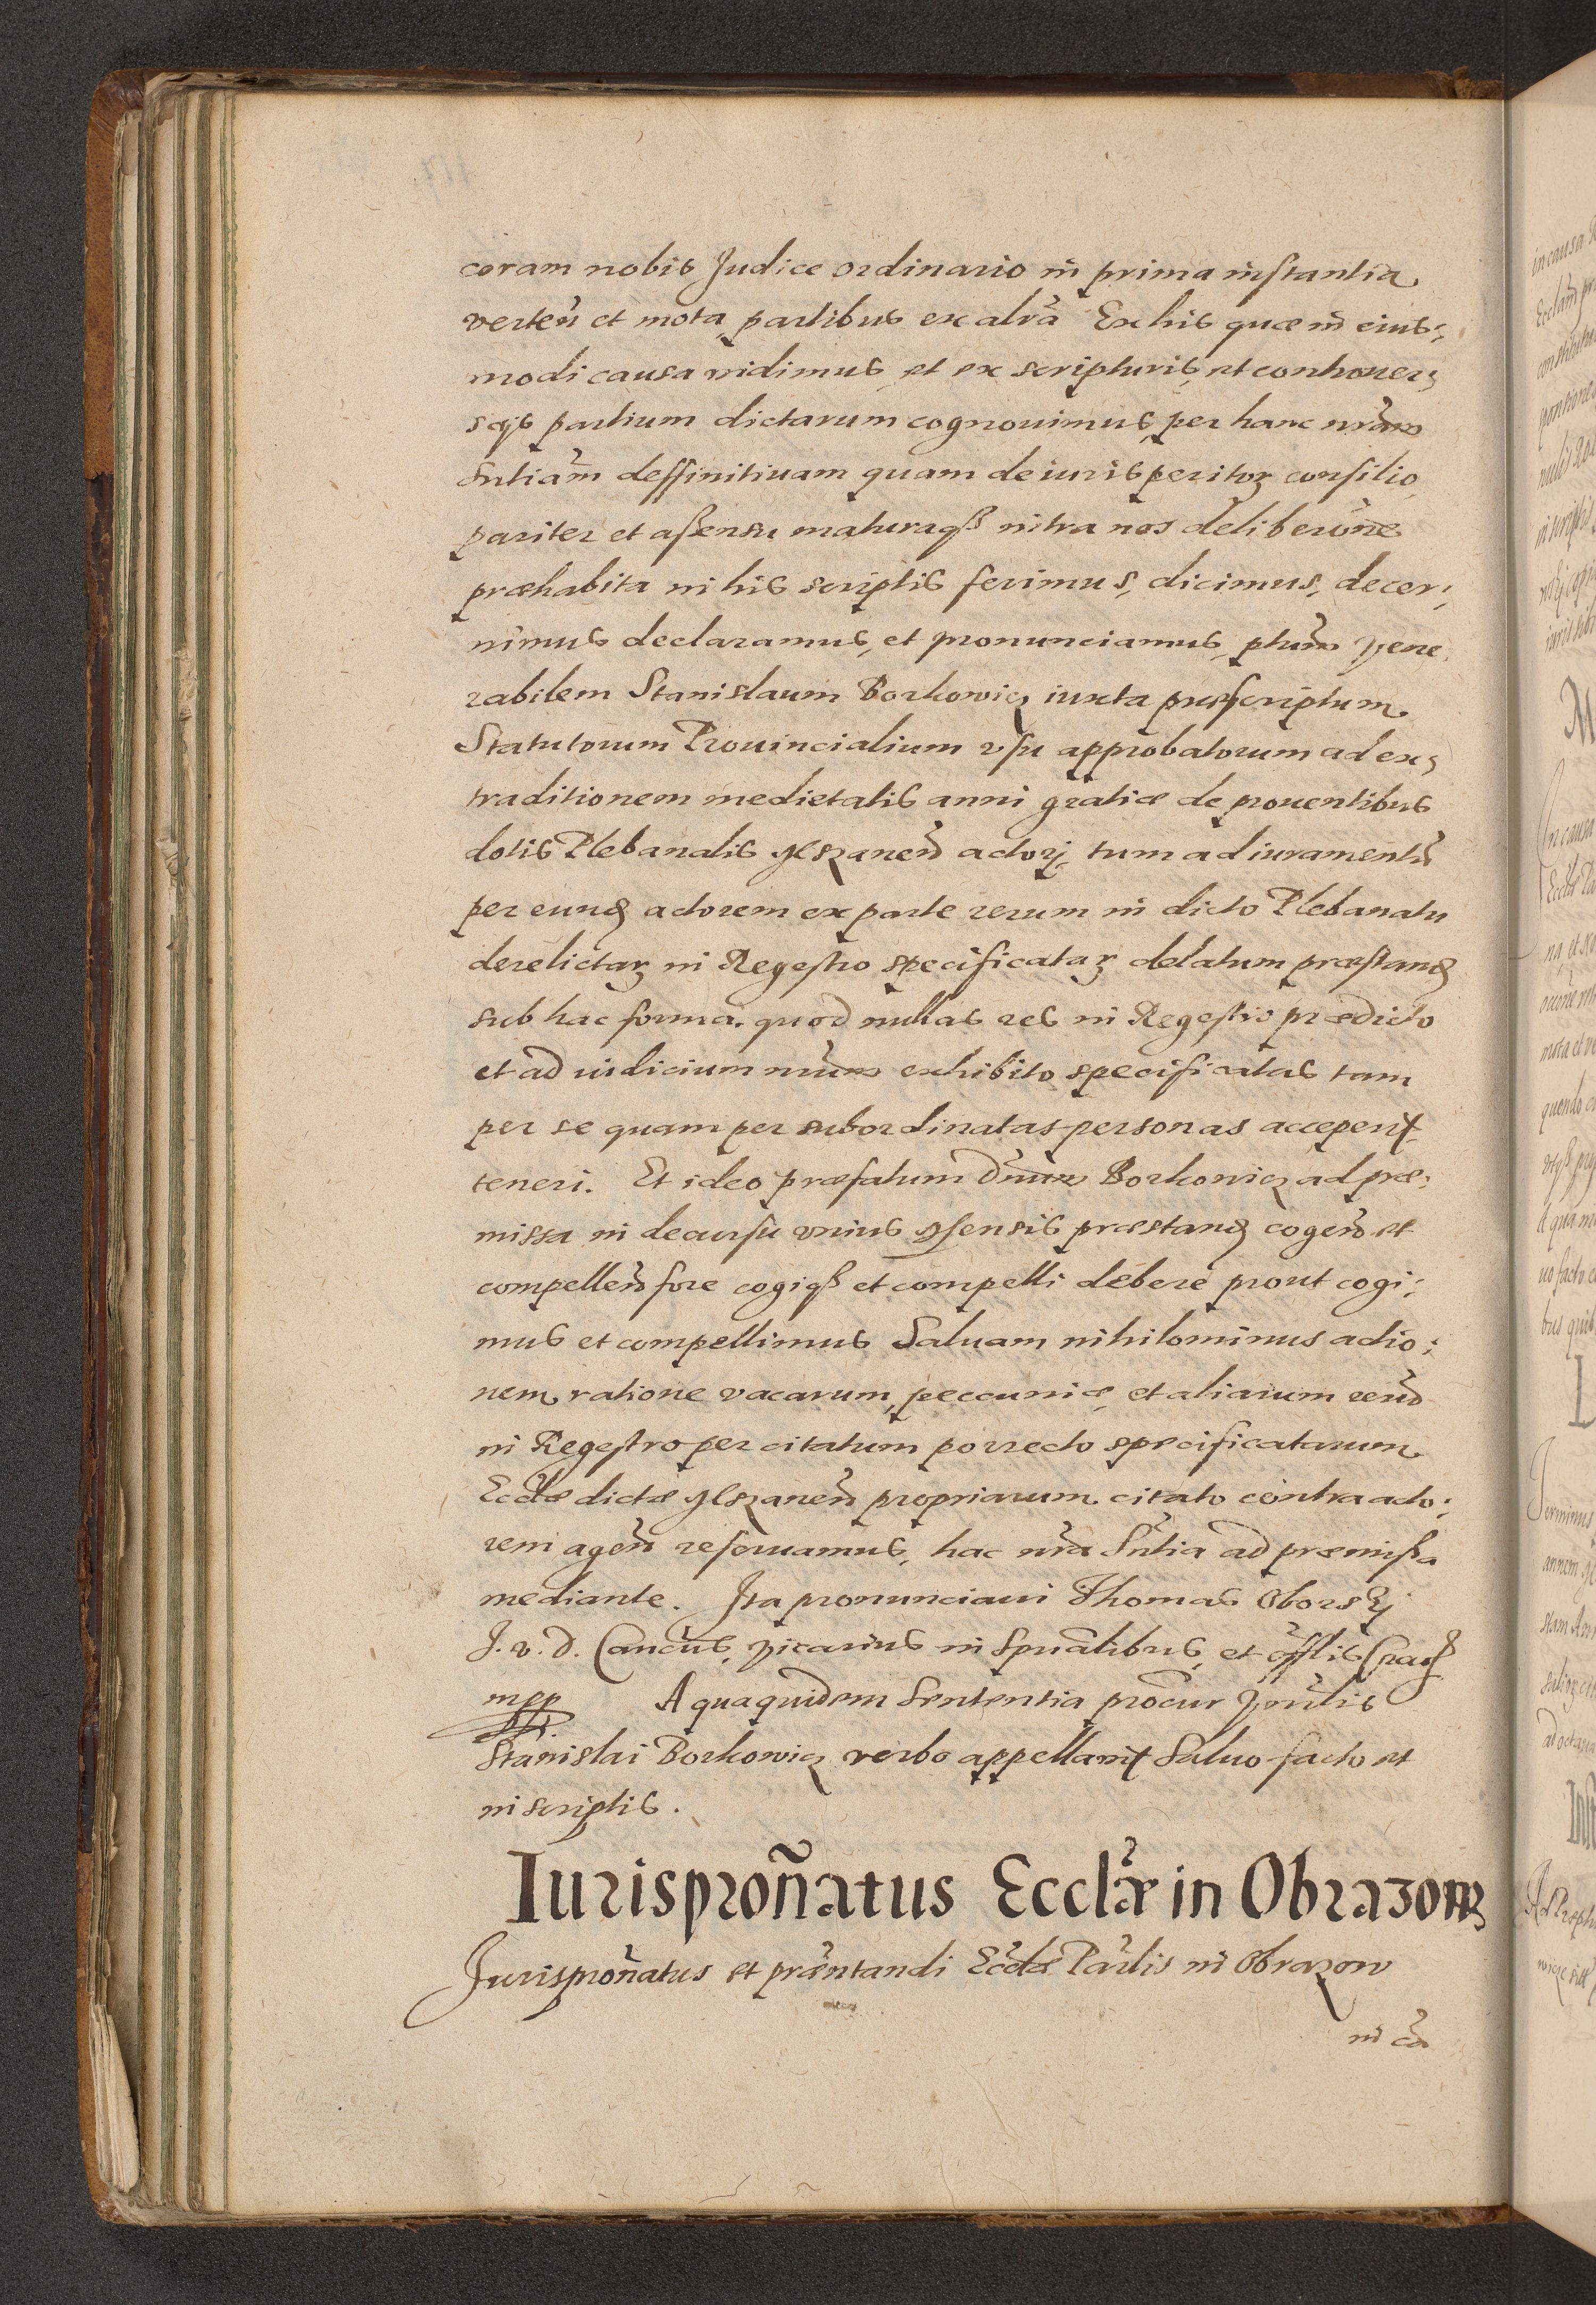 coram nobis Judice ordinario in prima instantia
verteñ et mota partibus ex altrã Ex his quæ in eius:
modi causa vidimus, et ex scripturis, et controuer:
sijs partium dictarum cognouimus, per hanc nrãm
Sntiãm deffinitiuam quam de iuris peritoꝝ consilio
pariter et assensu maturaqꝫ intra nos deliberõne
præhabita in his scriptis ferimus, dicimus, decer:
nimus declaramus, et pronunciamus, pttum Vene
rabilem Stanislaum Borkowicz iuxta præscriptum
Statutorum Prouincialium vsu approbatorum ad ex:
traditionem medietatis anni gratiæ de prouentibus
dotis Plebanalis Ilzaneñ actori, tum ad iuramentũ
per eund actorem ex parte rerum in dicto Plebanatu
derelictaꝝ in Regestro specificataꝝ delatum præstand
sub hac forma. quod nullas res in Regestro prædicto
et ad iudicium nrũm exhibito specificatas tam
per se quam per subordinatas personas acceperit
teneri. Et ideo præfatum Dnũm Borkowicz ad præ:
missa in decursu vnius Mensis præstand cogend et
compellend fore cogiqꝫ et compelli debere prout cogi:
mus et compellimus Saluam nihilominus actio:
nem ratione vacarum, peccuniæ, et aliarum rerũ
in Regestro per citatum porrecto specificatarum
Eccłæ dictæ Ilzaneñ propriarum citato contra acto:
rem agend reseruamus, hac nrã Sntiã ad præmissa
mediante. Ita pronunciaui Thomas Oborskj
J. V. D. Cancũs, Vicarius in Spũalibus, et Offlis Crac
mpp A qua quidem Sententia procur Vnrlis
Stanislai Borkowicz verbo appellauit Saluo facto et
in scriptis.
Iurisproñatus Ecclæ in Obrazow
Jurisproñatus et præntandi Ecclæ Parlis in Obrazow
in cã